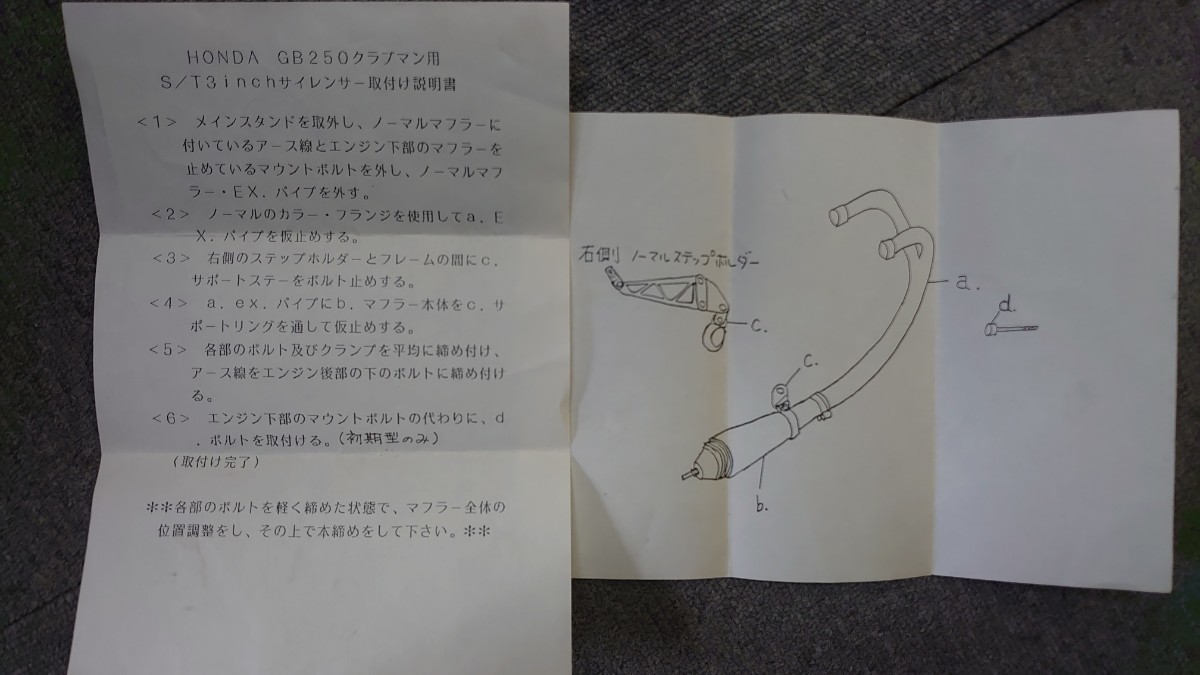 HONDA GB250クラブマン用
S/T3inchサイレンサー取付け説明書
<1> メインスタンドを取外し、ノーマルマフラーに
付いているアース線とエンジン下部のマフラーを
止めているマウントボルトを外し、ノーマルマフ
ラー・EX.パイプを外す。
<2> ノーマルのカラー・フランジを使用してa.E
X.パイプを仮止めする。
<3> 右側のステップホルダーとフレームの間にc.
サポートステーをボルト止めする。
<4> a.ex.パイプにb.マフラー本体をc.サ
ポートリングを通して仮止めする。
<5> 各部のボルト及びクランプを平均に締め付け、
アース線をエンジン後部の下のボルトに締め付け
る。
<6> エンジン下部のマウントボルトの代わりに、d
.ボルトを取付ける。(初期型のみ)
(取付け完了)
**各部のボルトを軽く締めた状態で、マフラー全体の
位置調整をし、その上で本締めをして下さい。**
右側 ノーマルステップホルダー
c.
a.
d.
c.
b.